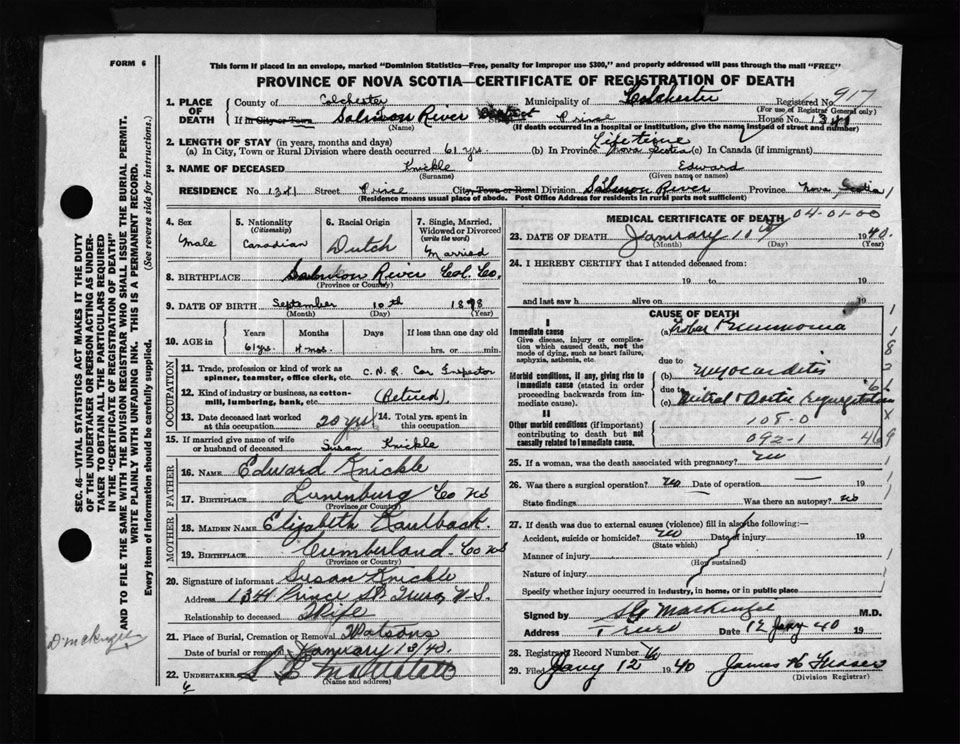 FORM 6
This form if placed in an envelope, marked "Dominion Statistics—Free, penalty for improper use $300," and properly addressed will pass through the mail "FREE"
PROVINCE OF NOVA SCOTIA—CERTIFICATE OF REGISTRATION OF DEATH
SEC. 46—VITAL STATISTICS ACT MAKES IT THE DUTY
OF THE UNDERTAKER OR PERSON ACTING AS UNDER-
TAKER TO OBTAIN ALL THE PARTICULARS REQUIRED
IN THE "CERTIFICATE OF REGISTRATION OF DEATH"
AND TO FILE THE SAME WITH THE DIVISION REGISTRAR WHO SHALL ISSUE THE BURIAL PERMIT.
WRITE PLAINLY WITH UNFADING INK. THIS IS A PERMANENT RECORD.
Every item of information should be carefully supplied. (See reverse side for instructions.)
1. PLACE OF DEATH County of Colchester Municipality of Colchester Registered No. 917
(For use of Registrar General only)
If in City or Town Salmon River Street Prince House No. 1341
(Name) (If death occurred in a hospital or institution, give the name instead of street and number)
2. LENGTH OF STAY (in years, months and days)
(a) In City, Town or Rural Division where death occurred 61 yrs. (b) In Province Lifetime Nova Scotia (c) In Canada (if immigrant)
3. NAME OF DECEASED Knickle Edward
(Surname) (Given name or names)
RESIDENCE No. 1341 Street Prince City or Town or Rural Division Salmon River Province Nova Scotia
(Residence means usual place of abode. Post Office Address for residents in rural parts not sufficient)
4. Sex Male
5. Nationality (Citizenship) Canadian
6. Racial Origin Dutch
7. Single, Married, Widowed or Divorced (write the word) Married
8. BIRTHPLACE Salmon River Col. Co.
(Province or Country)
9. DATE OF BIRTH September 10th 1878
(Month) (Day) (Year)
10. AGE Years Months Days If less than one day old
61 yrs. 4 mos. hrs. or min.
OCCUPATION
11. Trade, profession or kind of work as spinner, teamster, office clerk, etc. C.N.R. Car Inspector
12. Kind of industry or business, as cotton-mill, lumbering, bank, etc. (Retired)
13. Date deceased last worked at this occupation 20 yrs
14. Total yrs. spent in this occupation
15. If married give name of wife or husband of deceased Susan Knickle
FATHER
16. NAME Edward Knickle
17. BIRTHPLACE Lunenburg Co NS
(Province or Country)
MOTHER
18. MAIDEN NAME Elizabeth Kaulback.
19. BIRTHPLACE Cumberland Co NS
(Province or Country)
20. Signature of informant Susan Knickle
Address 1341 Prince St. Truro, N.S.
Relationship to deceased Wife
21. Place of Burial, Cremation or Removal Watsons
Date of burial or removal January 13/40.
22. UNDERTAKER
(Name and address)
MEDICAL CERTIFICATE OF DEATH 04-01-00
23. DATE OF DEATH January 10th 1940.
(Month) (Day) (Year)
24. I HEREBY CERTIFY that I attended deceased from:
19 to 19
and last saw h alive on 19
CAUSE OF DEATH
I
Immediate cause
Give disease, injury or complication which caused death, not the mode of dying, such as heart failure, asphyxia, asthenia, etc.
(a) Lobar Pneumonia
due to
Morbid conditions, if any, giving rise to immediate cause (stated in order proceeding backwards from immediate cause).
(b) Myocarditis
due to
(c) Mitral & Aortic Regurgitation
II
Other morbid conditions (if important) contributing to death but not causally related to immediate cause.
108-0
092-1
25. If a woman, was the death associated with pregnancy? no
26. Was there a surgical operation? No Date of operation — 19
State findings Was there an autopsy? No
27. If death was due to external causes (violence) fill in also the following:—
Accident, suicide or homicide? No Date of injury 19
(State which)
Manner of injury
(How sustained)
Nature of injury
Specify whether injury occurred in industry, in home, or in public place
Signed by MacKenzie M.D.
Address Truro Date 12 Jany 40 19
28. Registrar's Record Number 16
29. Filed Jany 12 1940 James K Fraser
(Division Registrar)